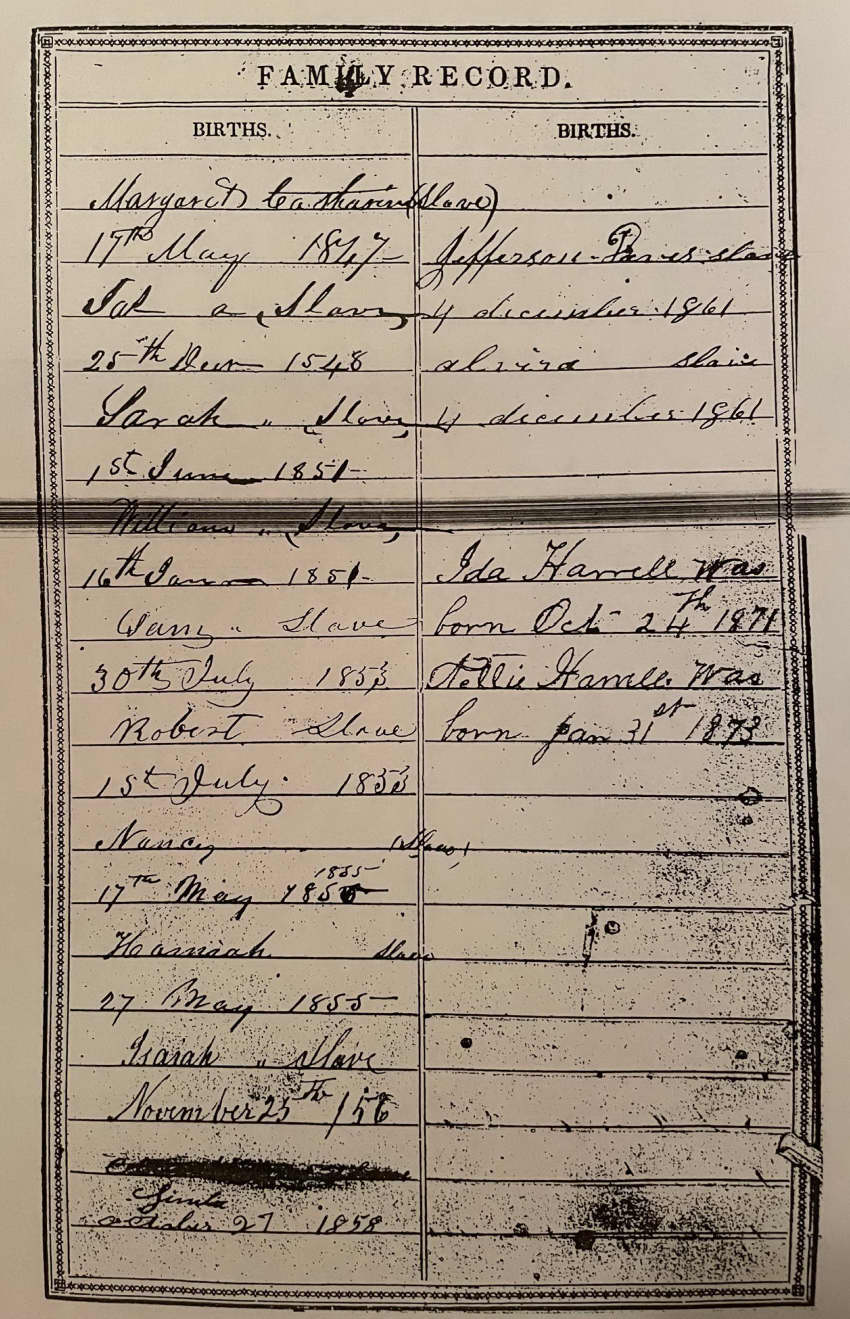 FAMILY RECORD.
BIRTHS.
Margaret Catharin (Slave)
17th May 1847
a (Slave)
25th 1548
Sarah " (Slave)
1st June 1851
William " (Slave)
16th Janr 1851
" Slave
30th July 1853
Robert Slave
1st July 1853
Nancy (Slave)
1855
17th May 185
Hannah Slave
27 May 1855
Isaiah " Slave
November 25th /56
October 27 1858
BIRTHS.
Jefferson Slave
4 december 1861
alvira slave
4 december 1861
Ida Harrell Was
born Oct 24th 1871
Nettie Harrell Was
born Jan 31st 1873